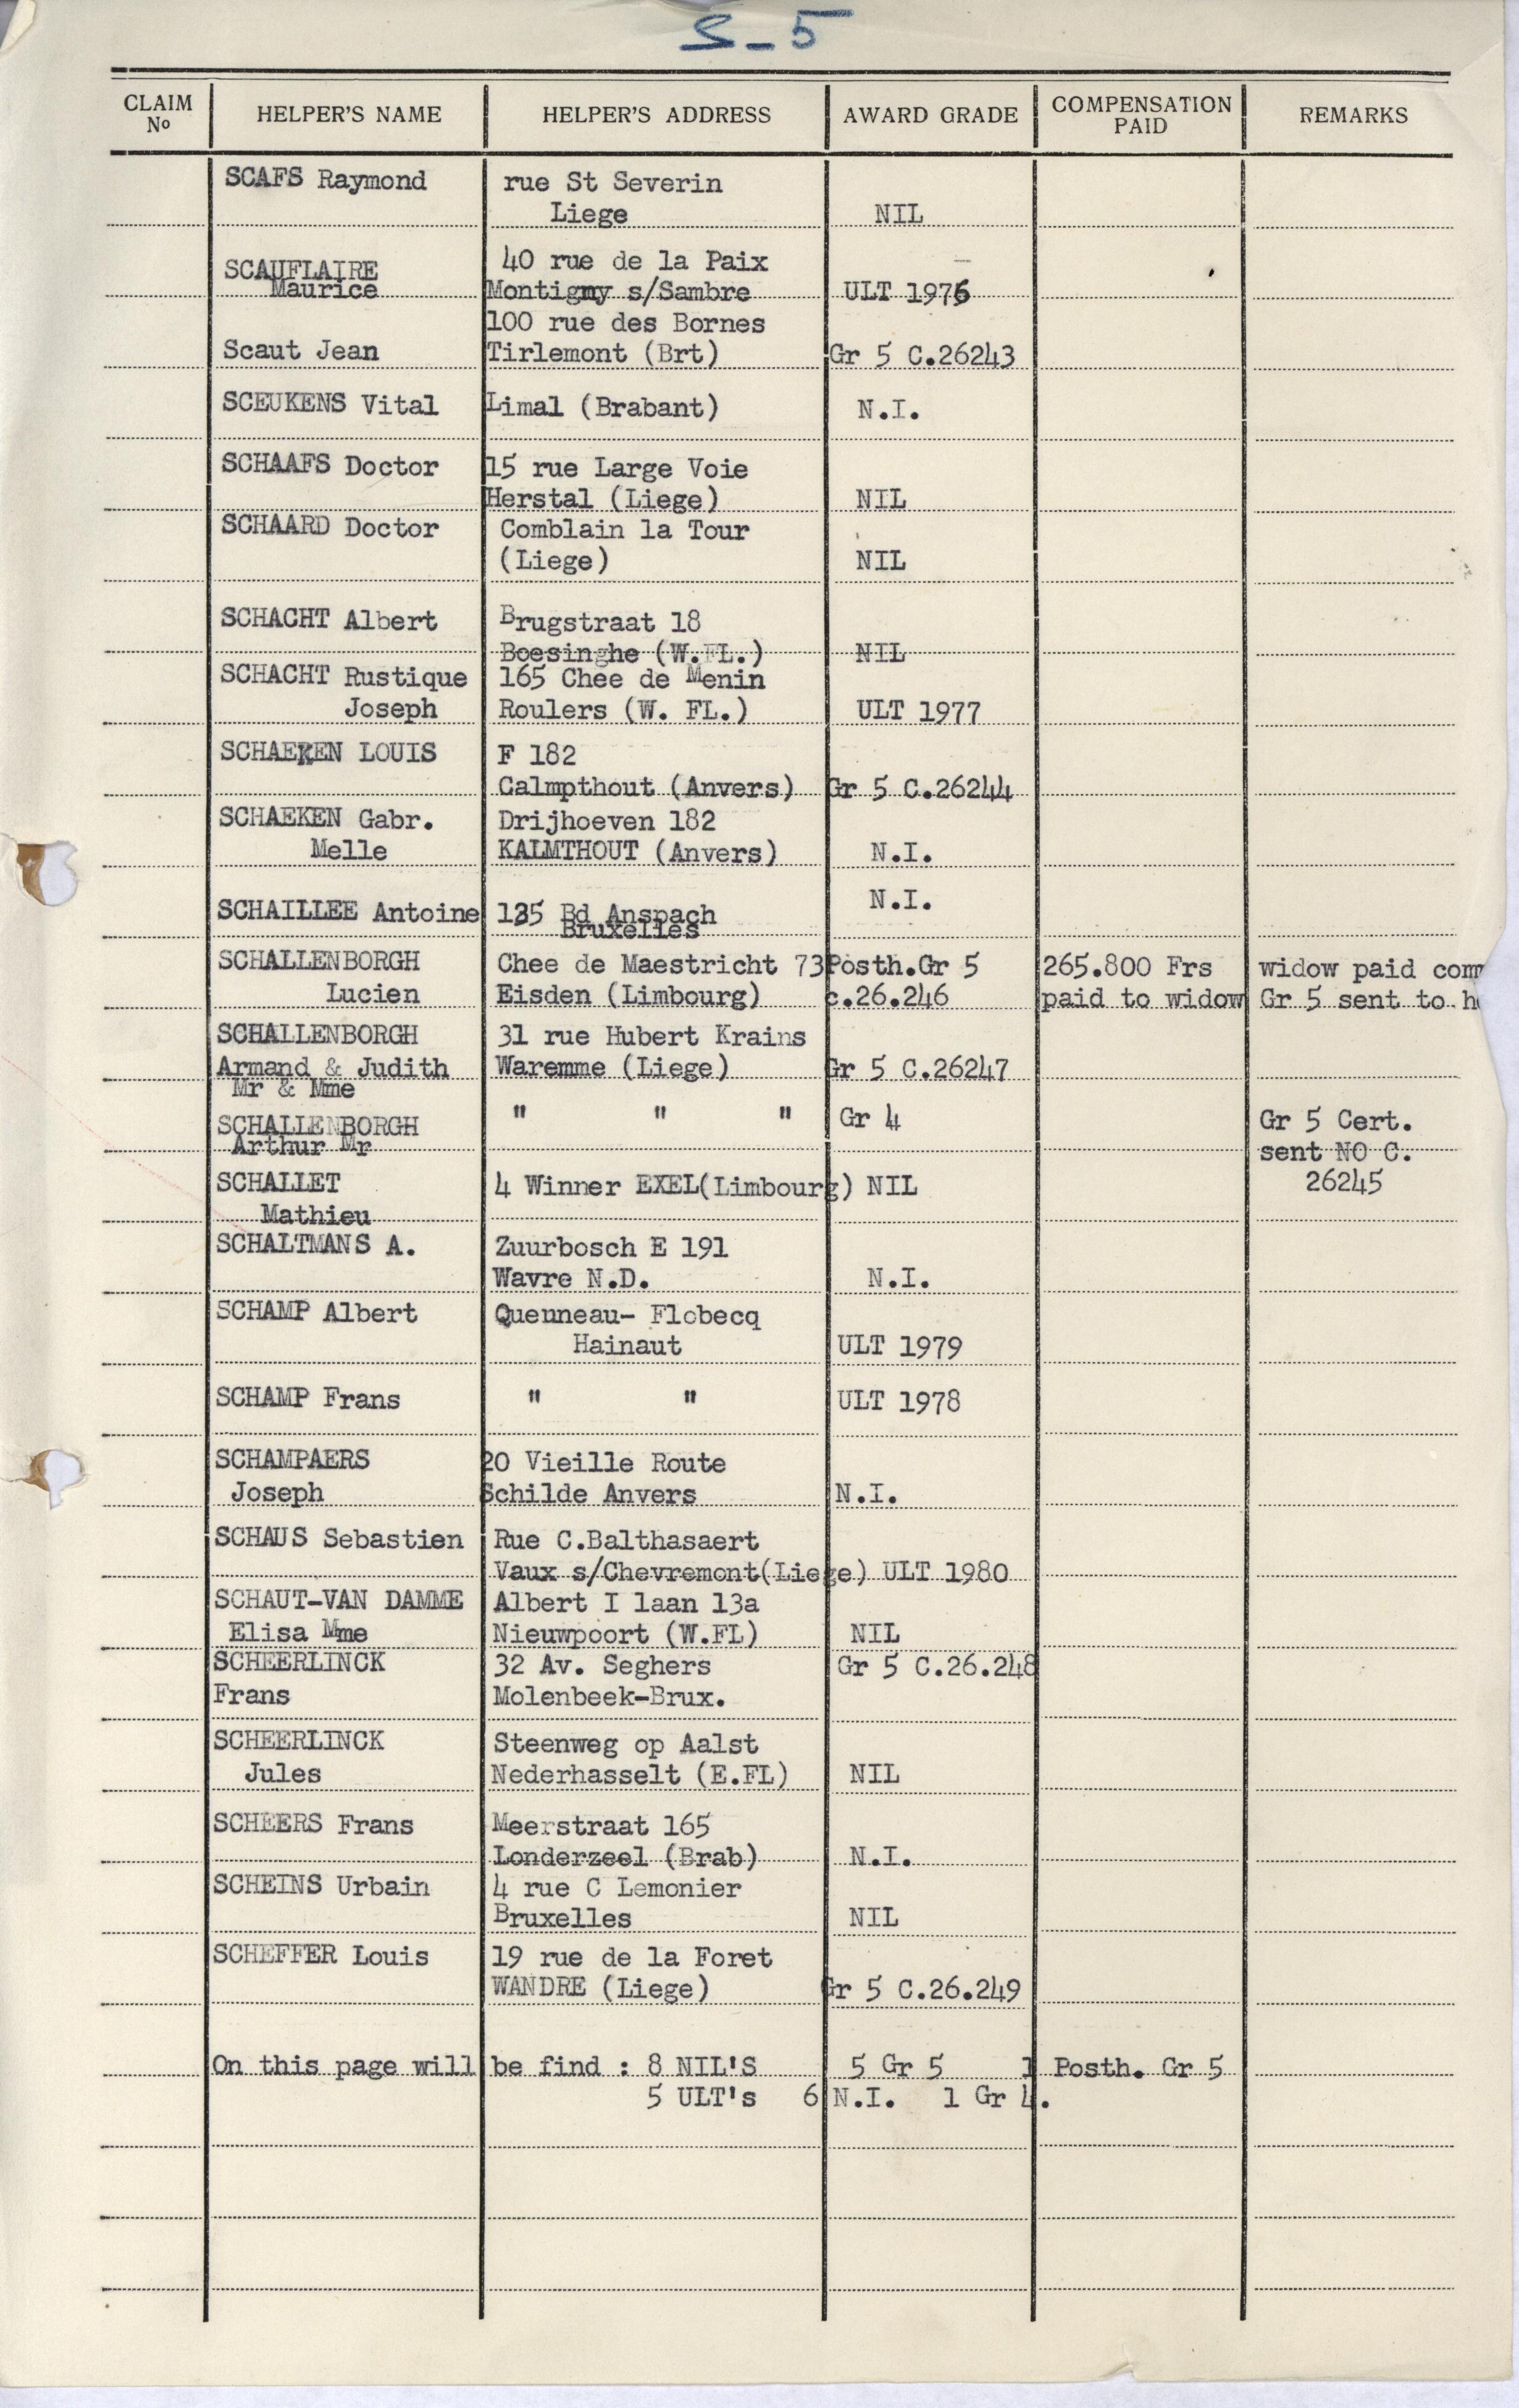 S-5
CLAIM No HELPER'S NAME HELPER'S ADDRESS AWARD GRADE COMPENSATION PAID REMARKS
SCAFS Raymond rue St Severin
Liege NIL
SCAUFLAIRE 40 rue de la Paix
Maurice Montigny s/Sambre ULT 1976
100 rue des Bornes
Scaut Jean Tirlemont (Brt) Gr 5 C.26243
SCEUKENS Vital Limal (Brabant) N.I.
SCHAAFS Doctor 15 rue Large Voie
Herstal (Liege) NIL
SCHAARD Doctor Comblain la Tour
(Liege) NIL
SCHACHT Albert Brugstraat 18
Boesinghe (W.FL.) NIL
SCHACHT Rustique 165 Chee de Menin
Joseph Roulers (W. FL.) ULT 1977
SCHAEKEN LOUIS F 182
Calmpthout (Anvers) Gr 5 C.26244
SCHAEKEN Gabr. Drijhoeven 182
Melle KALMTHOUT (Anvers) N.I.
SCHAILLEE Antoine 135 Bd Anspach N.I.
Bruxelles
SCHALLENBORGH Chee de Maestricht 73 Posth.Gr 5 265.800 Frs widow paid com
Lucien Eisden (Limbourg) c.26.246 paid to widow Gr 5 sent to h
SCHALLENBORGH 31 rue Hubert Krains
Armand & Judith Waremme (Liege) Gr 5 C.26247
Mr & Mme
SCHALLENBORGH " " " Gr 4 Gr 5 Cert.
Arthur Mr sent NO C.
SCHALLET 4 Winner EXEL(Limbourg) NIL 26245
Mathieu
SCHALTMANS A. Zuurbosch E 191
Wavre N.D. N.I.
SCHAMP Albert Quenneau- Flobecq
Hainaut ULT 1979
SCHAMP Frans " " ULT 1978
SCHAMPAERS 20 Vieille Route
Joseph Schilde Anvers N.I.
SCHAUS Sebastien Rue C.Balthasaert
Vaux s/Chevremont(Liege) ULT 1980
SCHAUT-VAN DAMME Albert I laan 13a
Elisa Mme Nieuwpoort (W.FL) NIL
SCHEERLINCK 32 Av. Seghers Gr 5 C.26.248
Frans Molenbeek-Brux.
SCHEERLINCK Steenweg op Aalst
Jules Nederhasselt (E.FL) NIL
SCHEERS Frans Meerstraat 165
Londerzeel (Brab) N.I.
SCHEINS Urbain 4 rue C Lemonier
Bruxelles NIL
SCHEFFER Louis 19 rue de la Foret
WANDRE (Liege) Gr 5 C.26.249
On this page will be find : 8 NIL'S 5 Gr 5 1 Posth. Gr 5
5 ULT's 6 N.I. 1 Gr 4.